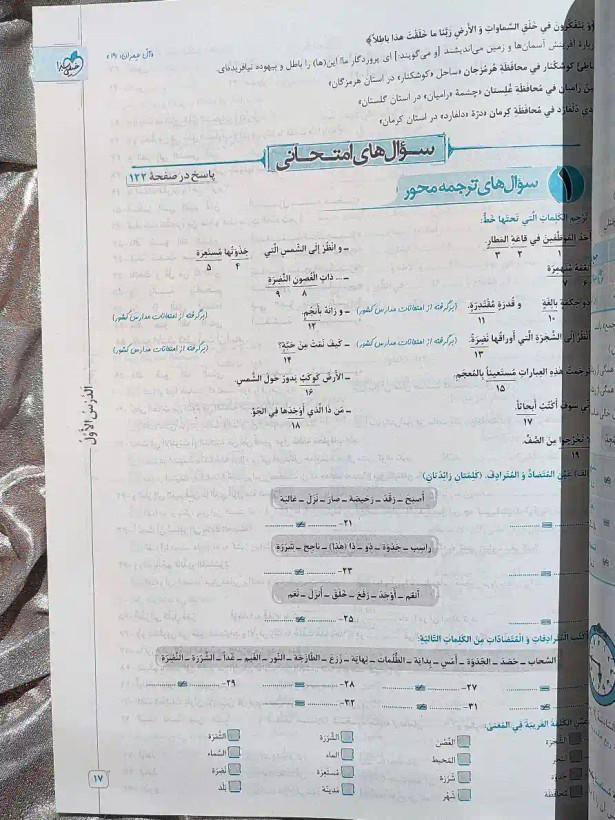 وَ يَتَفَكَّرونَ في خَلْقِ السَّماواتِ وَ الأَرضِ رَبَّنا ما خَلَقْتَ هذا باطِلاً﴾
«آل عِمران: ۱۹۱»
آفرینش آسمان‌ها و زمین می‌اندیشند [و می‌گویند:] ای پروردگار ما! این(ها) را باطل و بیهوده نیافریده‌ای.
كوشكنار في محافَظَةِ هُرمُزجان «ساحل «کوشکنار» در استان هرمزگان»
رامیان في محافَظَةِ غُلِستان «چشمهٔ «رامیان» در استان گلستان»
دلفارد في مُحافَظَةِ كِرمان «درّهٔ «دلفارد» در استان کرمان»
سؤال‌های امتحانی
پاسخ در صفحهٔ ۱۲۲
۱ سؤال‌های ترجمه محور
تَرجِمِ الكَلِماتِ الَّتي تَحتَها خَطٌّ:
أَحَدُ المُوَظَّفينَ في قاعَةِ المَطارِ
۱ ۲ ۳
ـ وَ انْظُرْ إلَى الشَّمسِ الَّتي جَذوَتُها مُستَعِرَة
۴ ۵
مُنهَمِرَة
۶ ۷
ـ ... ذاتِ الغُصونِ النَّضِرَة
۸ ۹
ذو حِكمَةٍ بالِغَةٍ وَ قُدرَةٍ مُقتَدِرَةٍ. (برگرفته از امتحانات مدارس کشور)
۱۰ ۱۱
ـ وَ زانَهُ بِأَنجُمٍ (برگرفته از امتحانات مدارس کشور)
۱۲
اُنظُرْ إلَى الشَّجَرَةِ الَّتي أَوراقُها نَضِرَةٌ. (برگرفته از امتحانات مدارس کشور)
۱۳
ـ كَيفَ نَمَتْ مِن حَبَّةٍ؟ (برگرفته از امتحانات مدارس کشور)
۱۴
هذِهِ العِباراتِ مُستَعيناً بِالمُعجَمِ.
۱۵
ـ الأَرضُ كَوكَبٌ يَدورُ حَولَ الشَّمسِ.
۱۶
سَوفَ أَكتُبُ أَبحاثاً.
۱۷
ـ مَن ذَا الَّذي أَوجَدَها في الجَوِّ
۱۸
لا تَخرُجوا مِنَ الصَّفِّ.
۱۹
عَيِّنِ المُتَضادَّ وَ المُتَرادِفَ. (كَلِمَتانِ زائِدَتانِ)
أَصبَحَ ـ رَقَدَ ـ رَخيصَة ـ صارَ ـ نَزَلَ ـ غالِيَة
= ............
۲۱- ............ ≠ ............
راسِب ـ جَذوَة ـ ذو ـ ذا (هذا) ـ ناجِح ـ شَرَرَة
= ............
۲۳- ............ ≠ ............
أَنعُم ـ أَوجَدَ ـ رَفَعَ ـ خَلَقَ ـ أَنزَلَ ـ نِعَم
۲۵- ............ ≠ ............
اُكتُبِ المُتَرادِفاتِ وَ المُتَضادّاتِ مِنَ الكَلِماتِ التّاليَةِ:
السَّحاب ـ حَصَدَ ـ الجَذوَة ـ أَمسِ ـ بِدايَة ـ الظُّلُمات ـ نِهايَة ـ زَرَعَ ـ الطّازَجَة ـ النّور ـ الغَيم ـ غَداً ـ الشَّرَرَة ـ النَّضِرَة
≠ ............ ۲۷- ............ = ............ ۲۸- ............ = ............ ۲۹- ............ ≠ ............
≠ ............ ۳۱- ............ ≠ ............ ۳۲- ............ = ............
عَيِّنِ الكَلِمَةَ الغَريبَةَ فِي المَعنى:
الشَّجَرَة الغُصْن الشَّرَرَة الثَّمَرَة
المُحيط الماء السَّماء
جَذوَة شَرَرَة مُستَعِرَة نَضِرَة
مُحافَظَة شَهْر مَدينَة بَلَد
الدَّرسُ الأَوَّلُ
۱۷